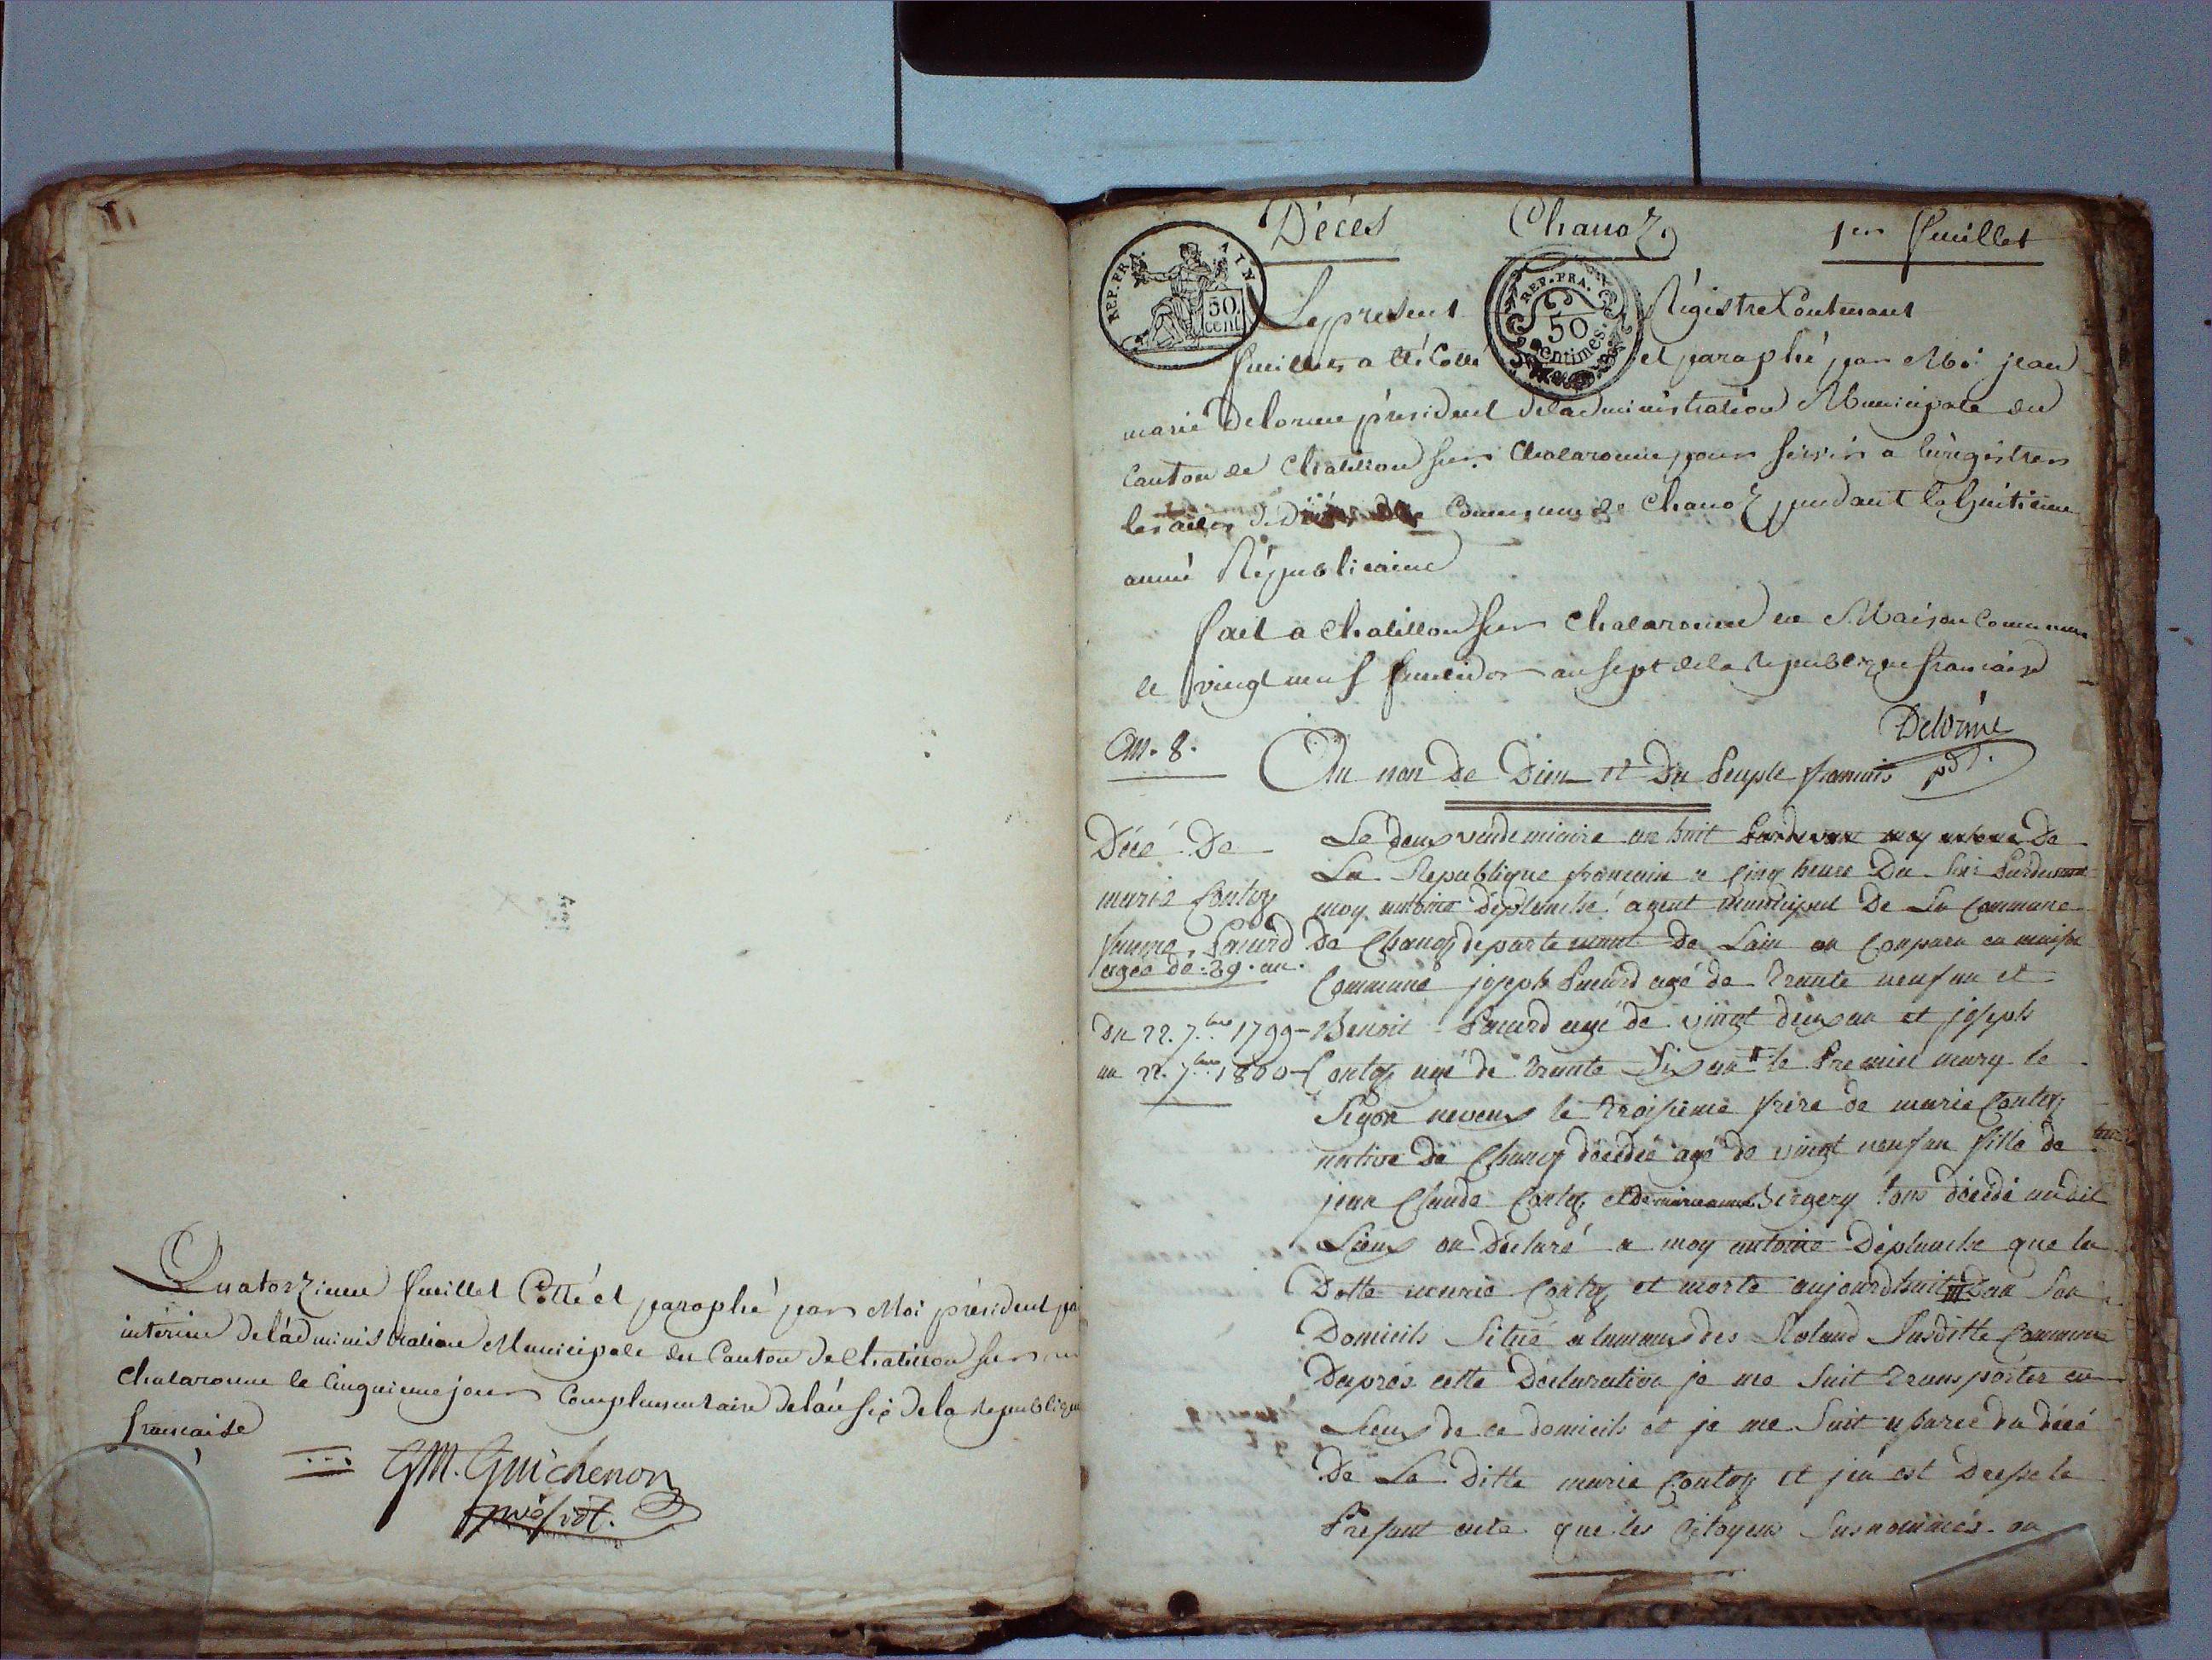 Quatorzieme feuillet Cotté et paraphé par Moi président pa
interim de l'administration Municipale du Canton de Chatillon sur
Chalaronne le Cinquieme jour Complementaire de l'an six de la Republique
francaise
GM. Guichenon
présidt.
Décès Chanoz 1er feuillet
REP. FRA. AIN
50 cent
REP. FRA.
50 centimes.
Le present Régistre Contenant
feuillets a été Cotté et paraphé par Moi jean
marie Delorme président de l'administration Municipale du
Canton de Chatillon sur Chalaronne pour servir a enregistrer
les actes de Commune de Chanoz pendant la huitieme
année Républicaine
fait a Chatillon sur Chalaronne en Maison Commune
le vingt neuf fructidor an sept de la Republique francaise
Delorme
pdt.
An. 8.
Au non De Dieu et Du Peuple francais
Décé De
marie Contoz
femme Pacurd
agée de 29. an.
du 22. 7.bre 1799
au 22. 7.bre 1800
Le deux vendemiaire an huit De
La Republique francaise a cinq heure Du Soir Pardevant
moy antoine Déplanche agent municipal De La Commune
De Chanoz departement De Lain on Conparu en maison
Commune joseph Pacurd agé de trante neuf an et
Benoit Pacurd agé de vingt deux an et joseph
Contoz agé de trante Six an le Premier mary le
Segon neveux le troisieme frère de marie Contoz
native De Chanoz décédée agé de vingt neuf an fille de
jean Claude Contoz et de Bergery tous décédé audit
Lieux on Déclaré a moy antoine Déplanche que la
Ditte marie Contoz et morte aujourdhuit Dan Son
Domicile Situé a des Roland Susditte Commune
Daprès cette Déclaration je me Suit transporter au
Lieux de ce domicile et je me Suit aSuré du décé
De La Ditte marie Contoz et jen est Dressé le
Présant acte que les Citoyens Susnommés on